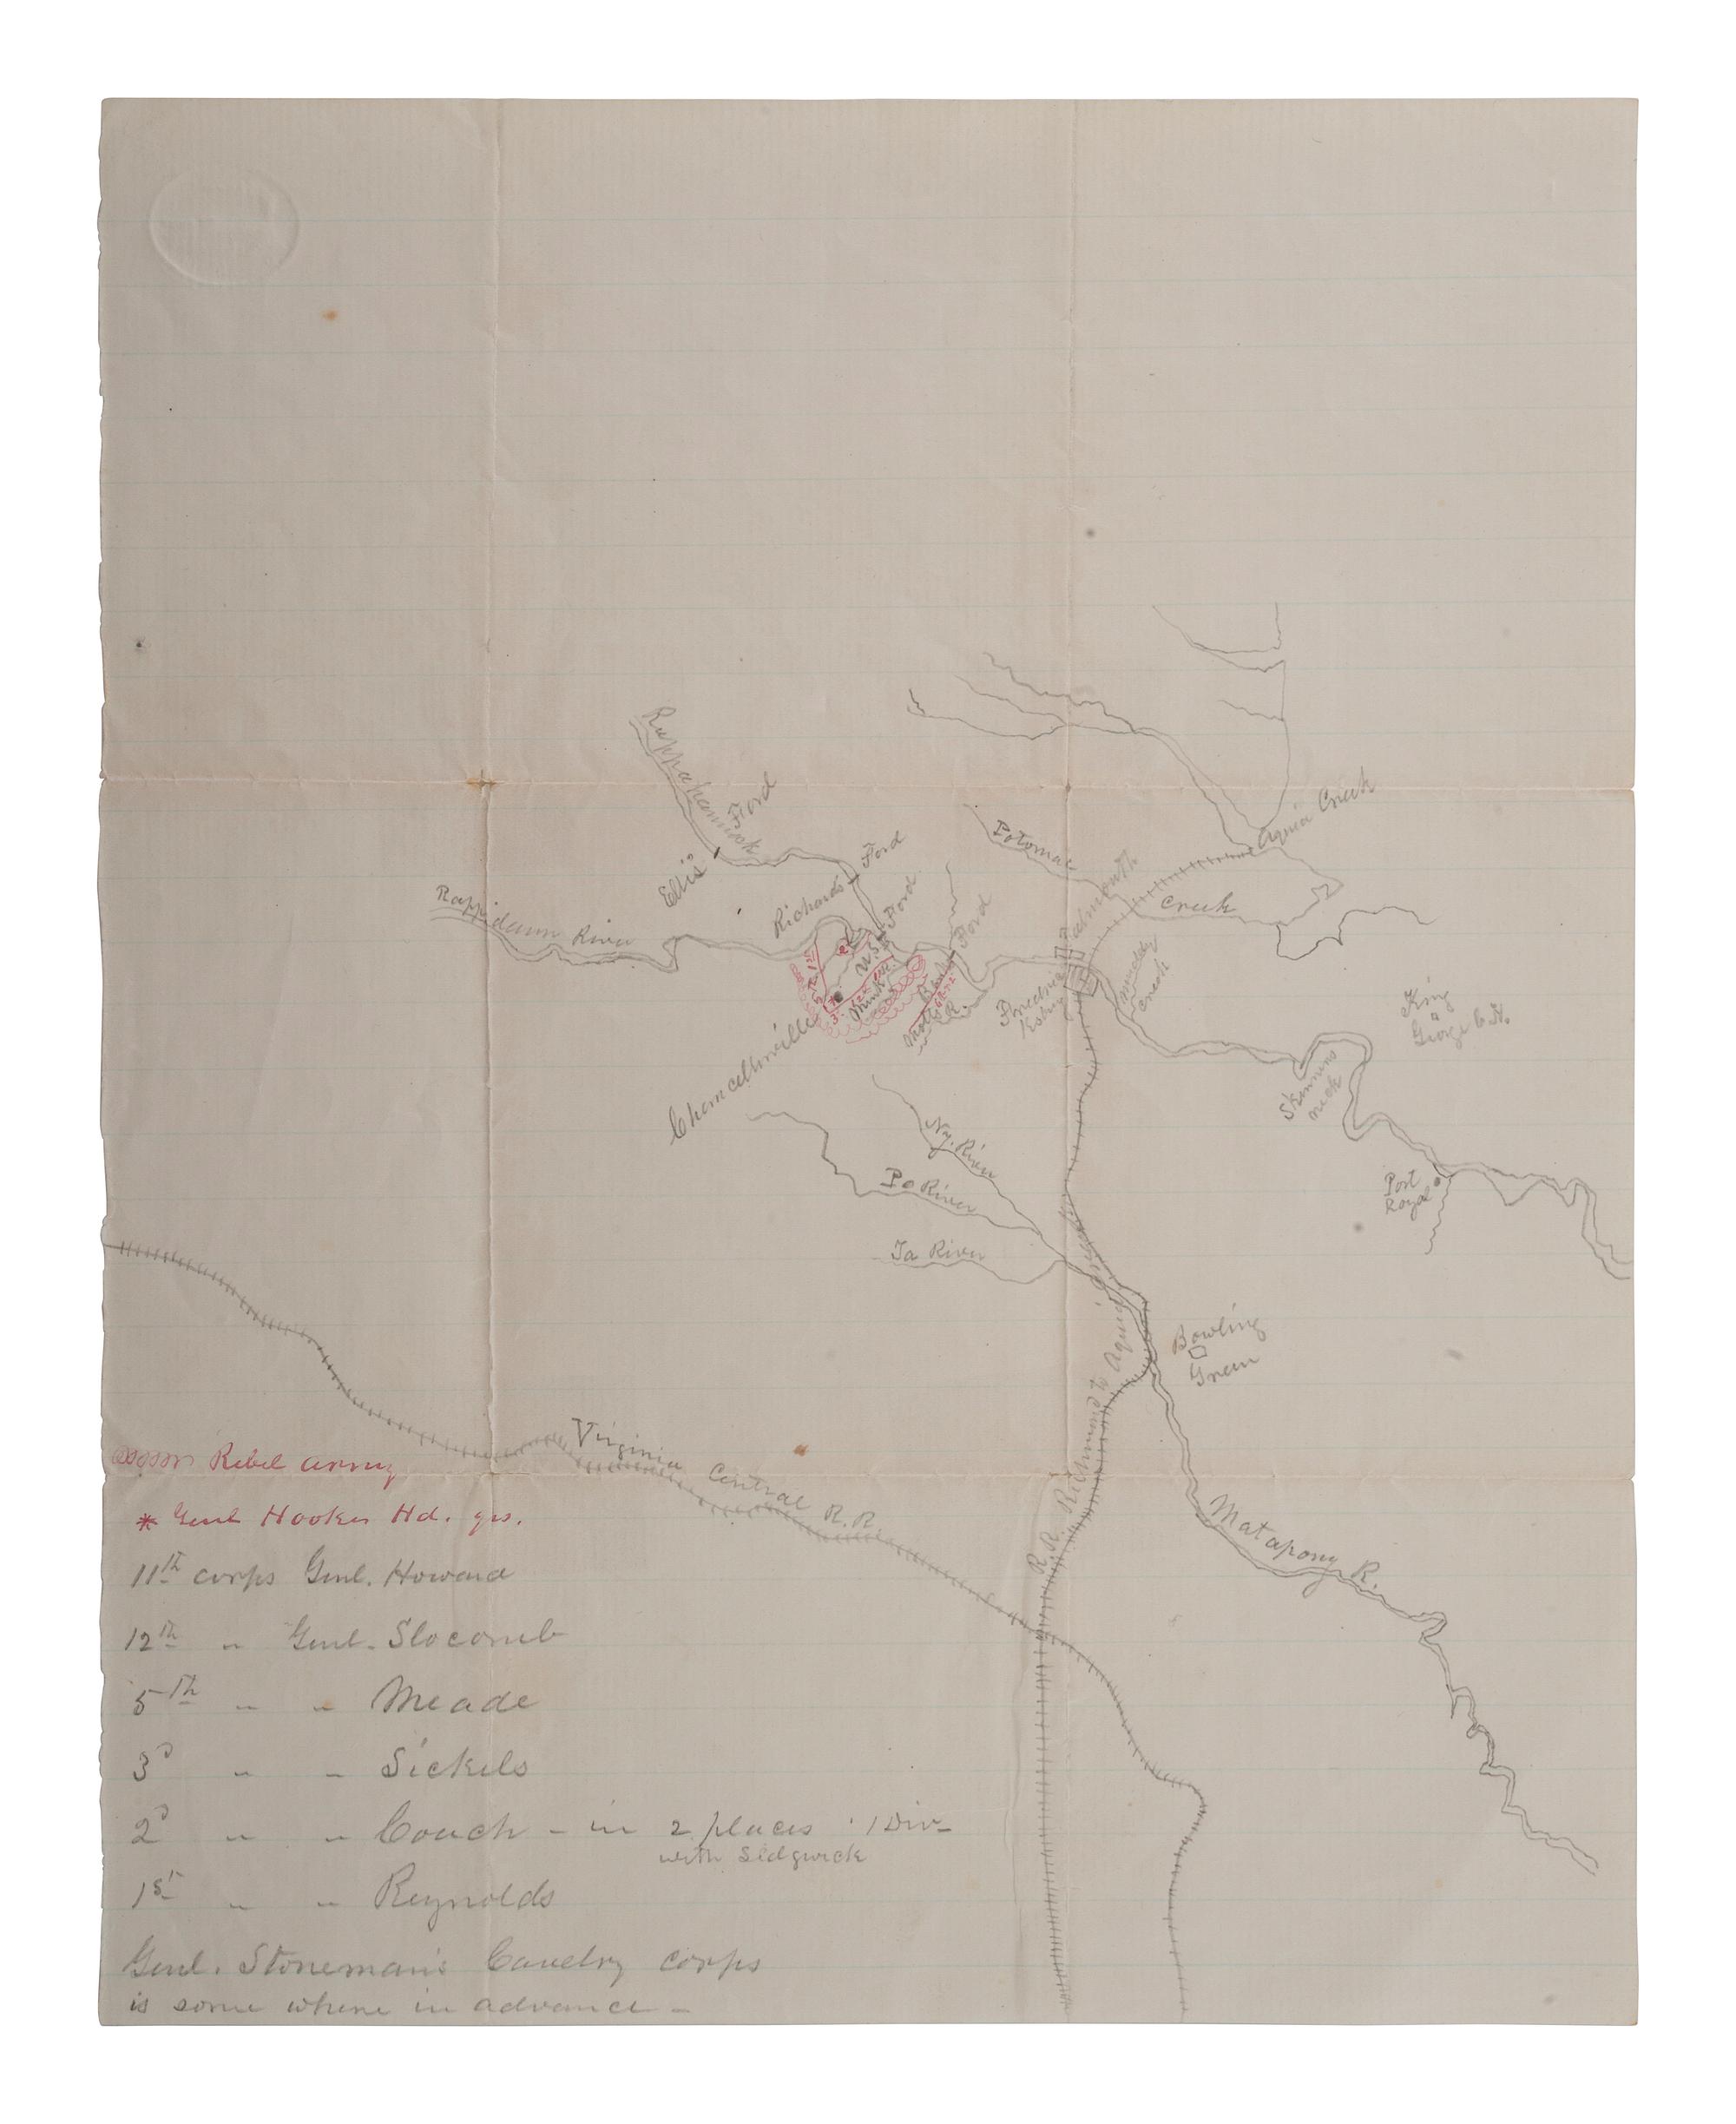 Rappahannock
Ford
Ellis
Richards Ford
U.S. Ford
Rappidann River
Potomac
Creek
Aquia Creek
Falmouth
Banks Ford
Fredrick
ksburg
Creek
King
George C.H.
Skinners
neck
Port
Royal
Chancellorville
Mott R.
Ny. River
Po River
Ta River
Bowling
Green
R.R. Richmond to Aquia Creek
Virginia Central R.R.
Matapony R.
Rebel army
* Genl Hooker Hd. qrs.
11th corps Genl. Howard
12th " Genl. Slocomb
5th " " Meade
3d " " Sickels
2d " " Couch - in 2 places . 1 Div-
with Sedgwick
1st " " Reynolds
Genl. Stoneman's Cavelry corps
is some where in advance -